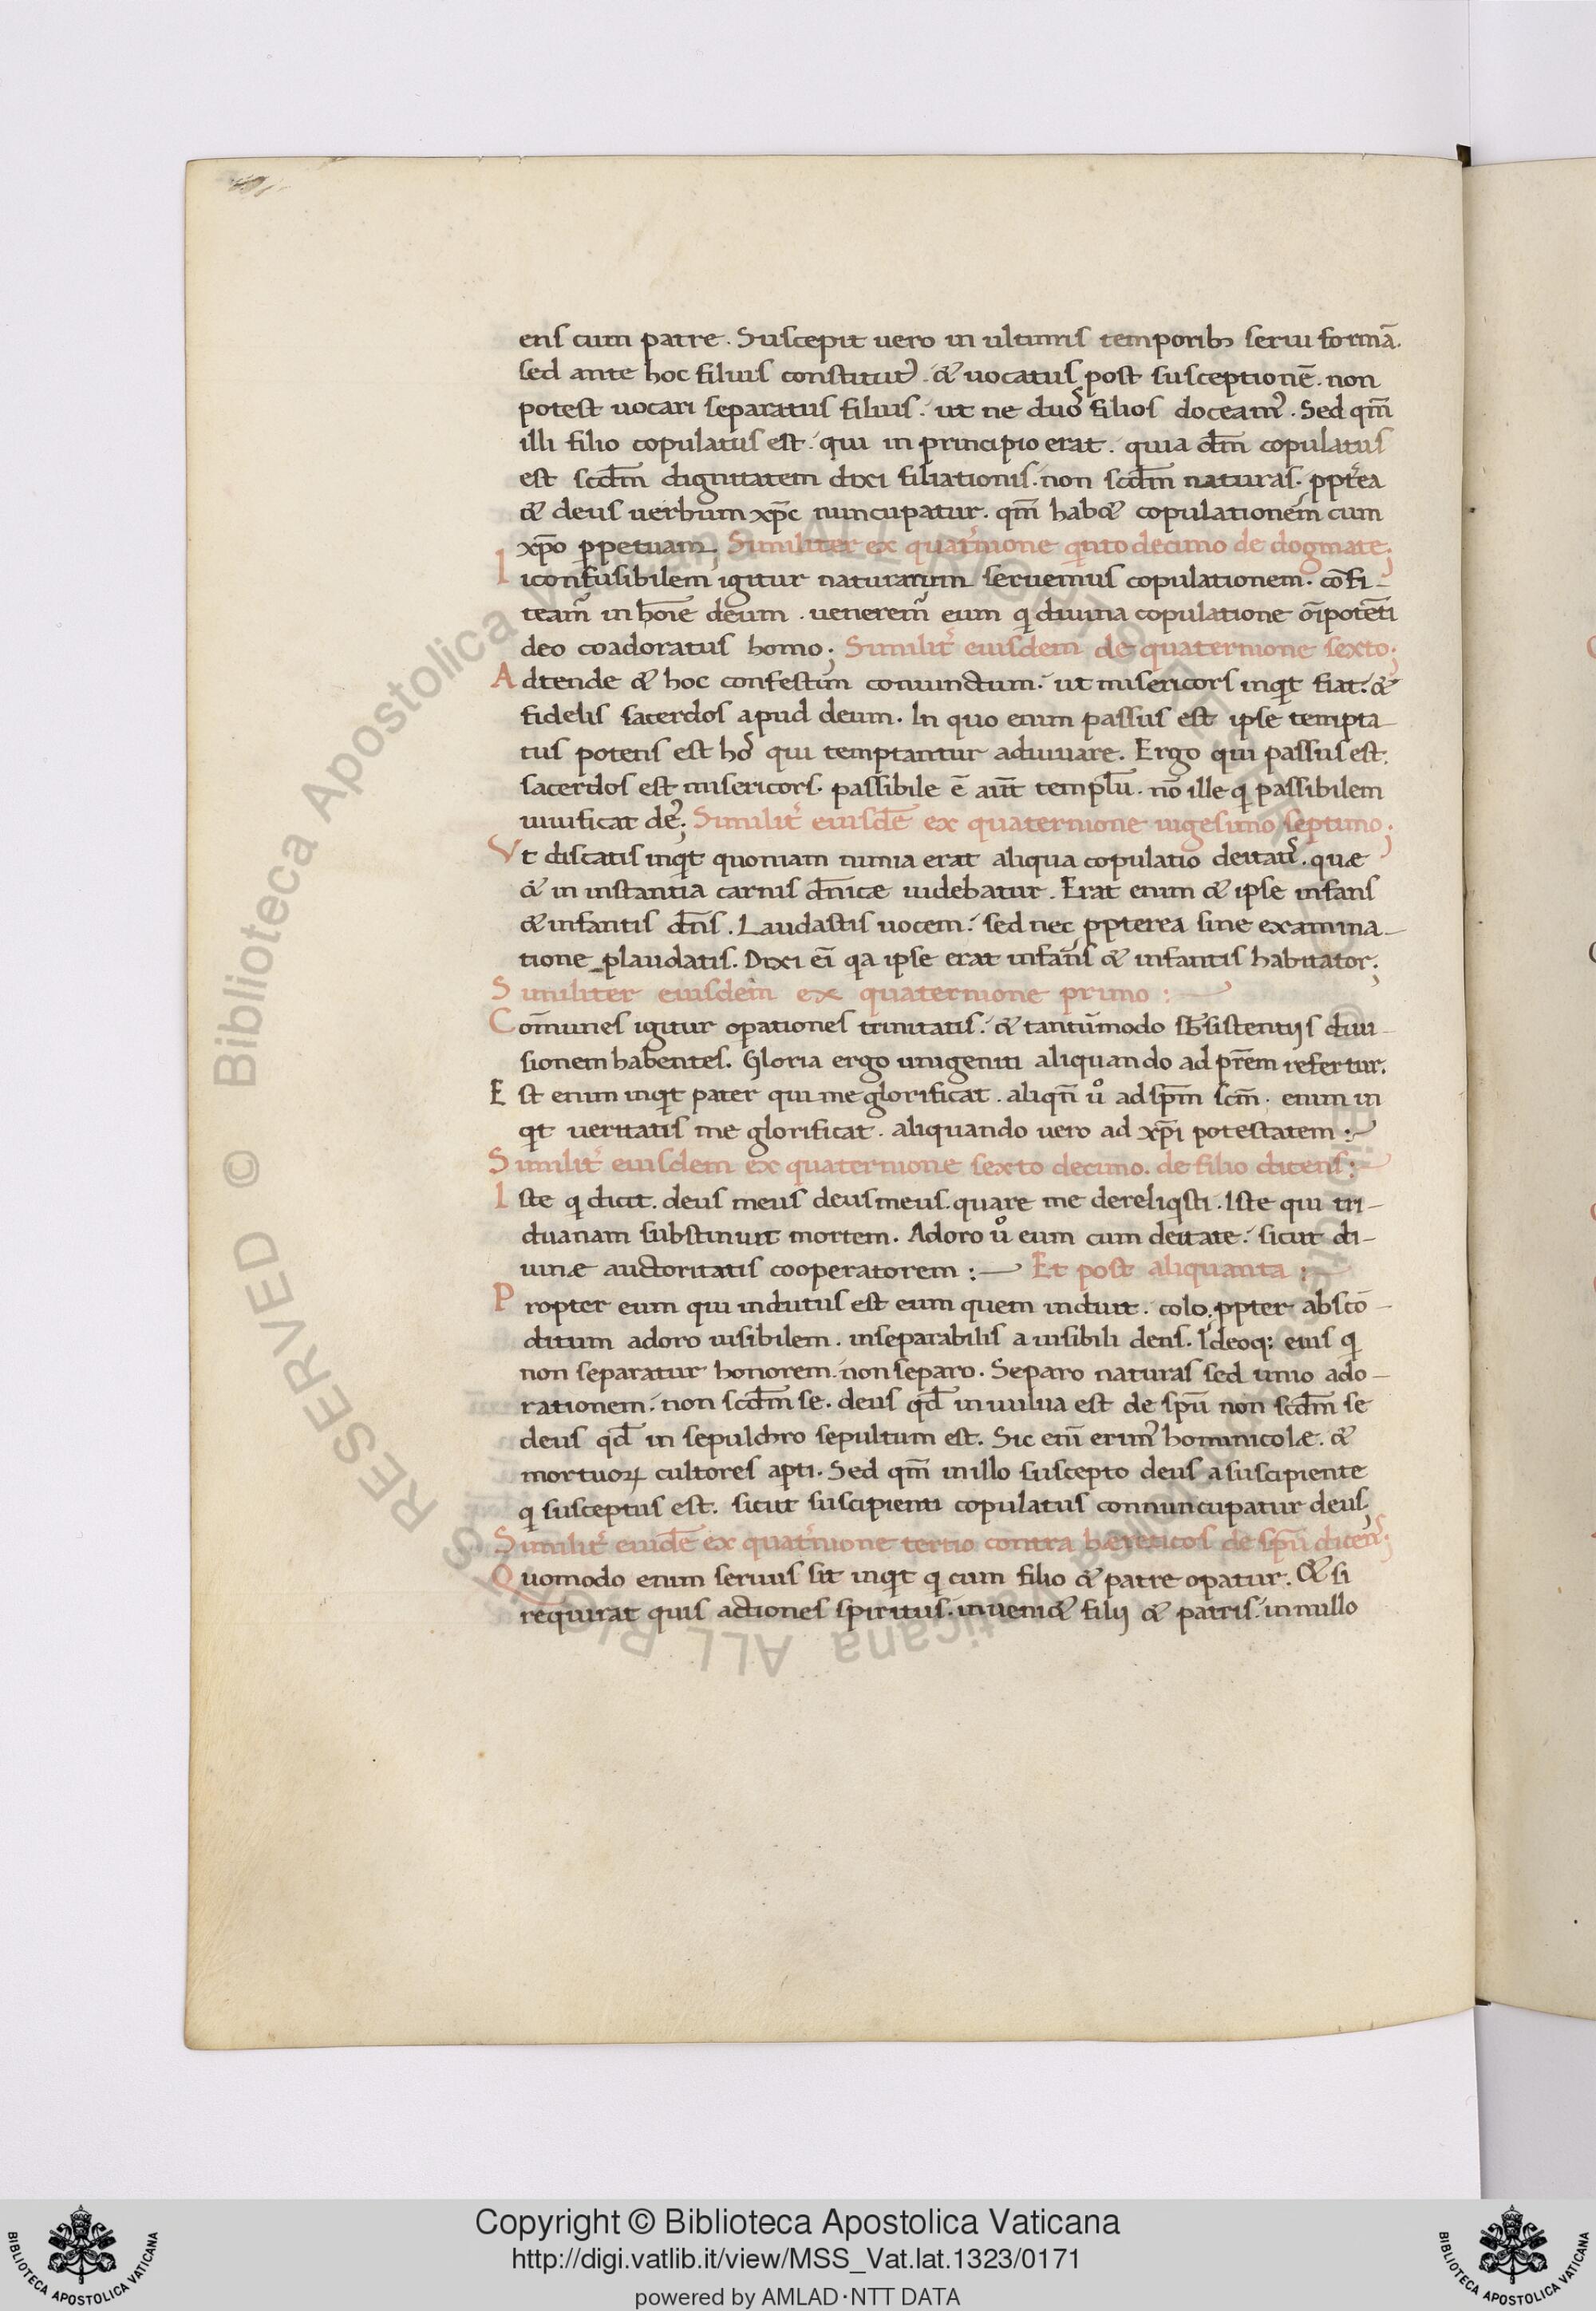 ens cum patre. Suscepit uero in ultimis temporib; serui formā.
sed ante hoc filius constitut᾿. & uocatus post susceptionē. non
potest uocari separatus filius. ut ne duos filios doceam᾿. Sed qm̄
illi filio copulatus est. qui in principio erat. quia dm̄ copulatus
est scdm̄ dignitatem dixi filiationis. non scdm̄ naturas. pptrea
& deus uerbum xp̄c nuncupatur. qm̄ hab& copulationem cum
xp̄o ppetuam. Similiter ex quat᾿nione qinto decimo de dogmate;
Iiconfusibilem igitur naturarum seruemus copulationem. cōfi-
team᾿ in hoīe deum. uenerem᾿ eum qi diuina copulatione oīpotēti
deo coadoratus homo; Similit᾿ eiusdem de quaternione sexto;
Adtende & hoc confestim coniunctum. ut misericors inqit fiat. &
fidelis sacerdos apud deum. In quo enim passus est ipse tempta-
tus potens est hos qui temptantur adiuuare. Ergo qui passus est.
sacerdos est misericors. passibile ē aūt templū. nō ille qi passibilem
uiuificat de᾿; Similit᾿ eiusdē ex quaternione uigesimo septimo;
Vt discatis inqit quoniam nimia erat aliqua copulatio deitatis. quæ
& in instantia carnis dn̄icæ uidebatur. Erat enim & ipse infans
& infantis dn̄s. Laudastis uocem. sed nec ppterea sine examina-
tione plaudatis. Dixi eī qa ipse erat infans & infantis habitator;
Similiter eiusdem ex quaternione primo :-
Com̄unes igitur opationes trinitatis. & tantūmodo sb̄sistentijs diui-
sionem habentes. Gloria ergo unigeniti aliquando ad pr̄em refertur.
Est enim inqit pater qui me glorificat. aliqn̄ uo ad sp̄m scm̄. enim in
qit ueritatis me glorificat. aliquando uero ad xp̄i potestatem :-
Similit᾿ eiusdem ex quaternione sexto decimo. de filio dicens:-
Iste qi dicit. deus meus deus meus. quare me dereliqisti. Iste qui tri-
duanam substinuit mortem. Adoro uo eum cum deitate. sicut di-
uinæ auctoritatis cooperatorem :- Et post aliquanta :-
Propter eum qui indutus est eum quem induit. colo. ppter abscō-
ditum adoro uisibilem. inseparabilis a uisibili dens. Ideoq; eius qi
non separatur honorem. non separo. Separo naturas sed unio ado-
rationem. non scdm̄ se. deus qd̄ in uulua est de spū non scdm̄ se
deus qd̄ in sepulchro sepultum est. Sic enī erim᾿ hominicolæ. &
mortuoꝝ cultores apti. Sed qm̄ in illo suscepto deus a suscipiente
qi susceptus est. sicut suscipienti copulatus connuncupatur deus;
Similit᾿ eiusdē ex quat᾿nione tertio contra hæreticos de spū dicens;
Quomodo enim seruus sit inqit qi cum filio & patre opatur. & si
requirat quis actiones spiritus. inueni& filij & patris. in nullo
Copyright © Biblioteca Apostolica Vaticana
http://digi.vatlib.it/view/MSS_Vat.lat.1323/0171
powered by AMLAD·NTT DATA
BIBLIOTECA APOSTOLICA VATICANA
BIBLIOTECA APOSTOLICA VATICANA
© Biblioteca Apostolica Vaticana ALL RIGHTS RESERVED